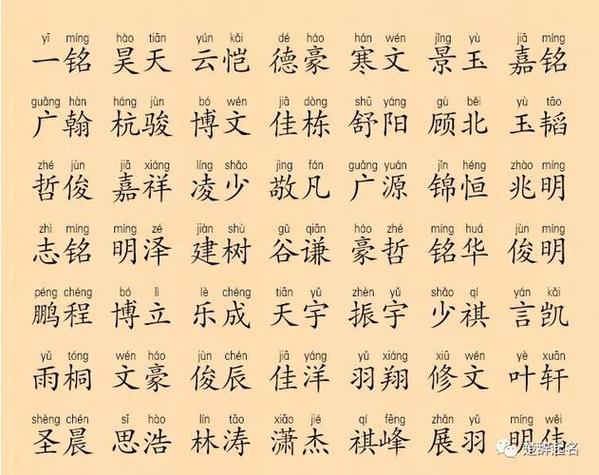 yī míng hào tiān yún kǎi dé háo hán wén jǐng yù jiā míng
一铭 昊天 云恺 德豪 寒文 景玉 嘉铭
guǎng hàn háng jùn bó wén jiā dòng shū yáng gù běi yù tāo
广翰 杭骏 博文 佳栋 舒阳 顾北 玉韬
zhé jùn jiā xiáng líng shǎo jìng fán guǎng yuán jǐn héng zhào míng
哲俊 嘉祥 凌少 敬凡 广源 锦恒 兆明
zhì míng míng zé jiàn shù gǔ qiān háo zhé míng huá jùn míng
志铭 明泽 建树 谷谦 豪哲 铭华 俊明
péng chéng bó lì lè chéng tiān yǔ zhèn yǔ shǎo qí yán kǎi
鹏程 博立 乐成 天宇 振宇 少祺 言凯
yǔ tóng wén háo jùn chén jiā yáng yǔ xiáng xiū wén yè xuān
雨桐 文豪 俊辰 佳洋 羽翔 修文 叶轩
shèng chén sī hào lín tāo xiāo jié qí fēng zhǎn yǔ míng wěi
圣晨 思浩 林涛 潇杰 祺峰 展羽 明伟
楚辞起名